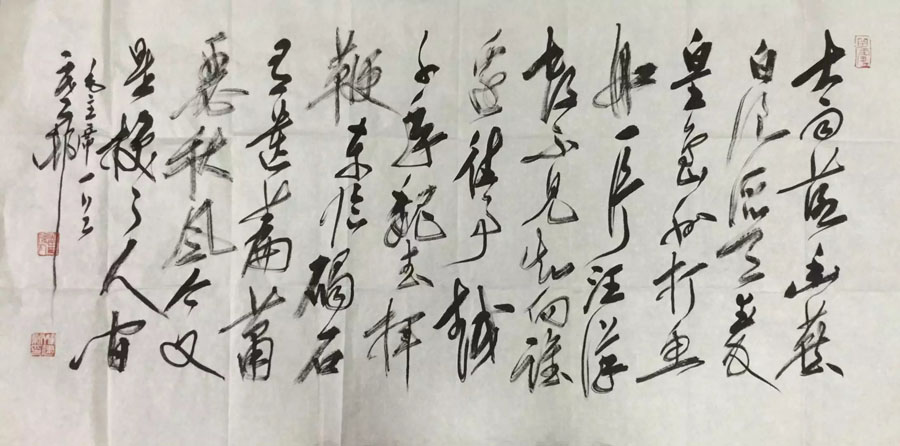 大雨落幽燕
白浪滔天秦
皇岛外打鱼
船一片汪洋
都不见知向谁
边往事越
千年魏武挥
鞭东临碣石
有遗篇萧
瑟秋风今又
是换了人间
毛主席